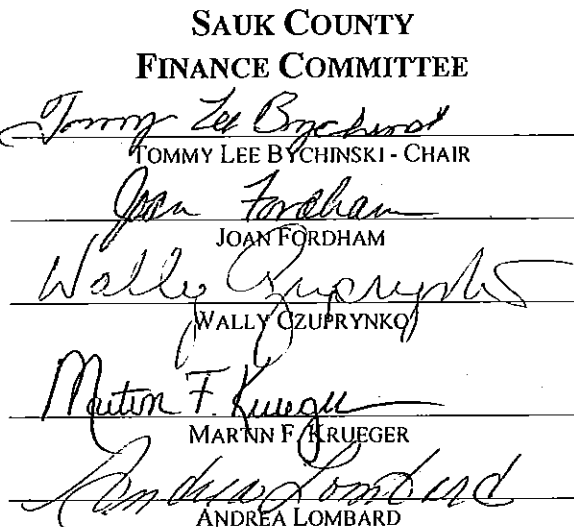 SAUK COUNTY
FINANCE COMMITTEE
Tommy Lee Bychinski
TOMMY LEE BYCHINSKI - CHAIR
Joan Fordham
JOAN FORDHAM
Wally Czuprynko
WALLY CZUPRYNKO
Martin F. Krueger
MARTIN F. KRUEGER
Andrea Lombard
ANDREA LOMBARD